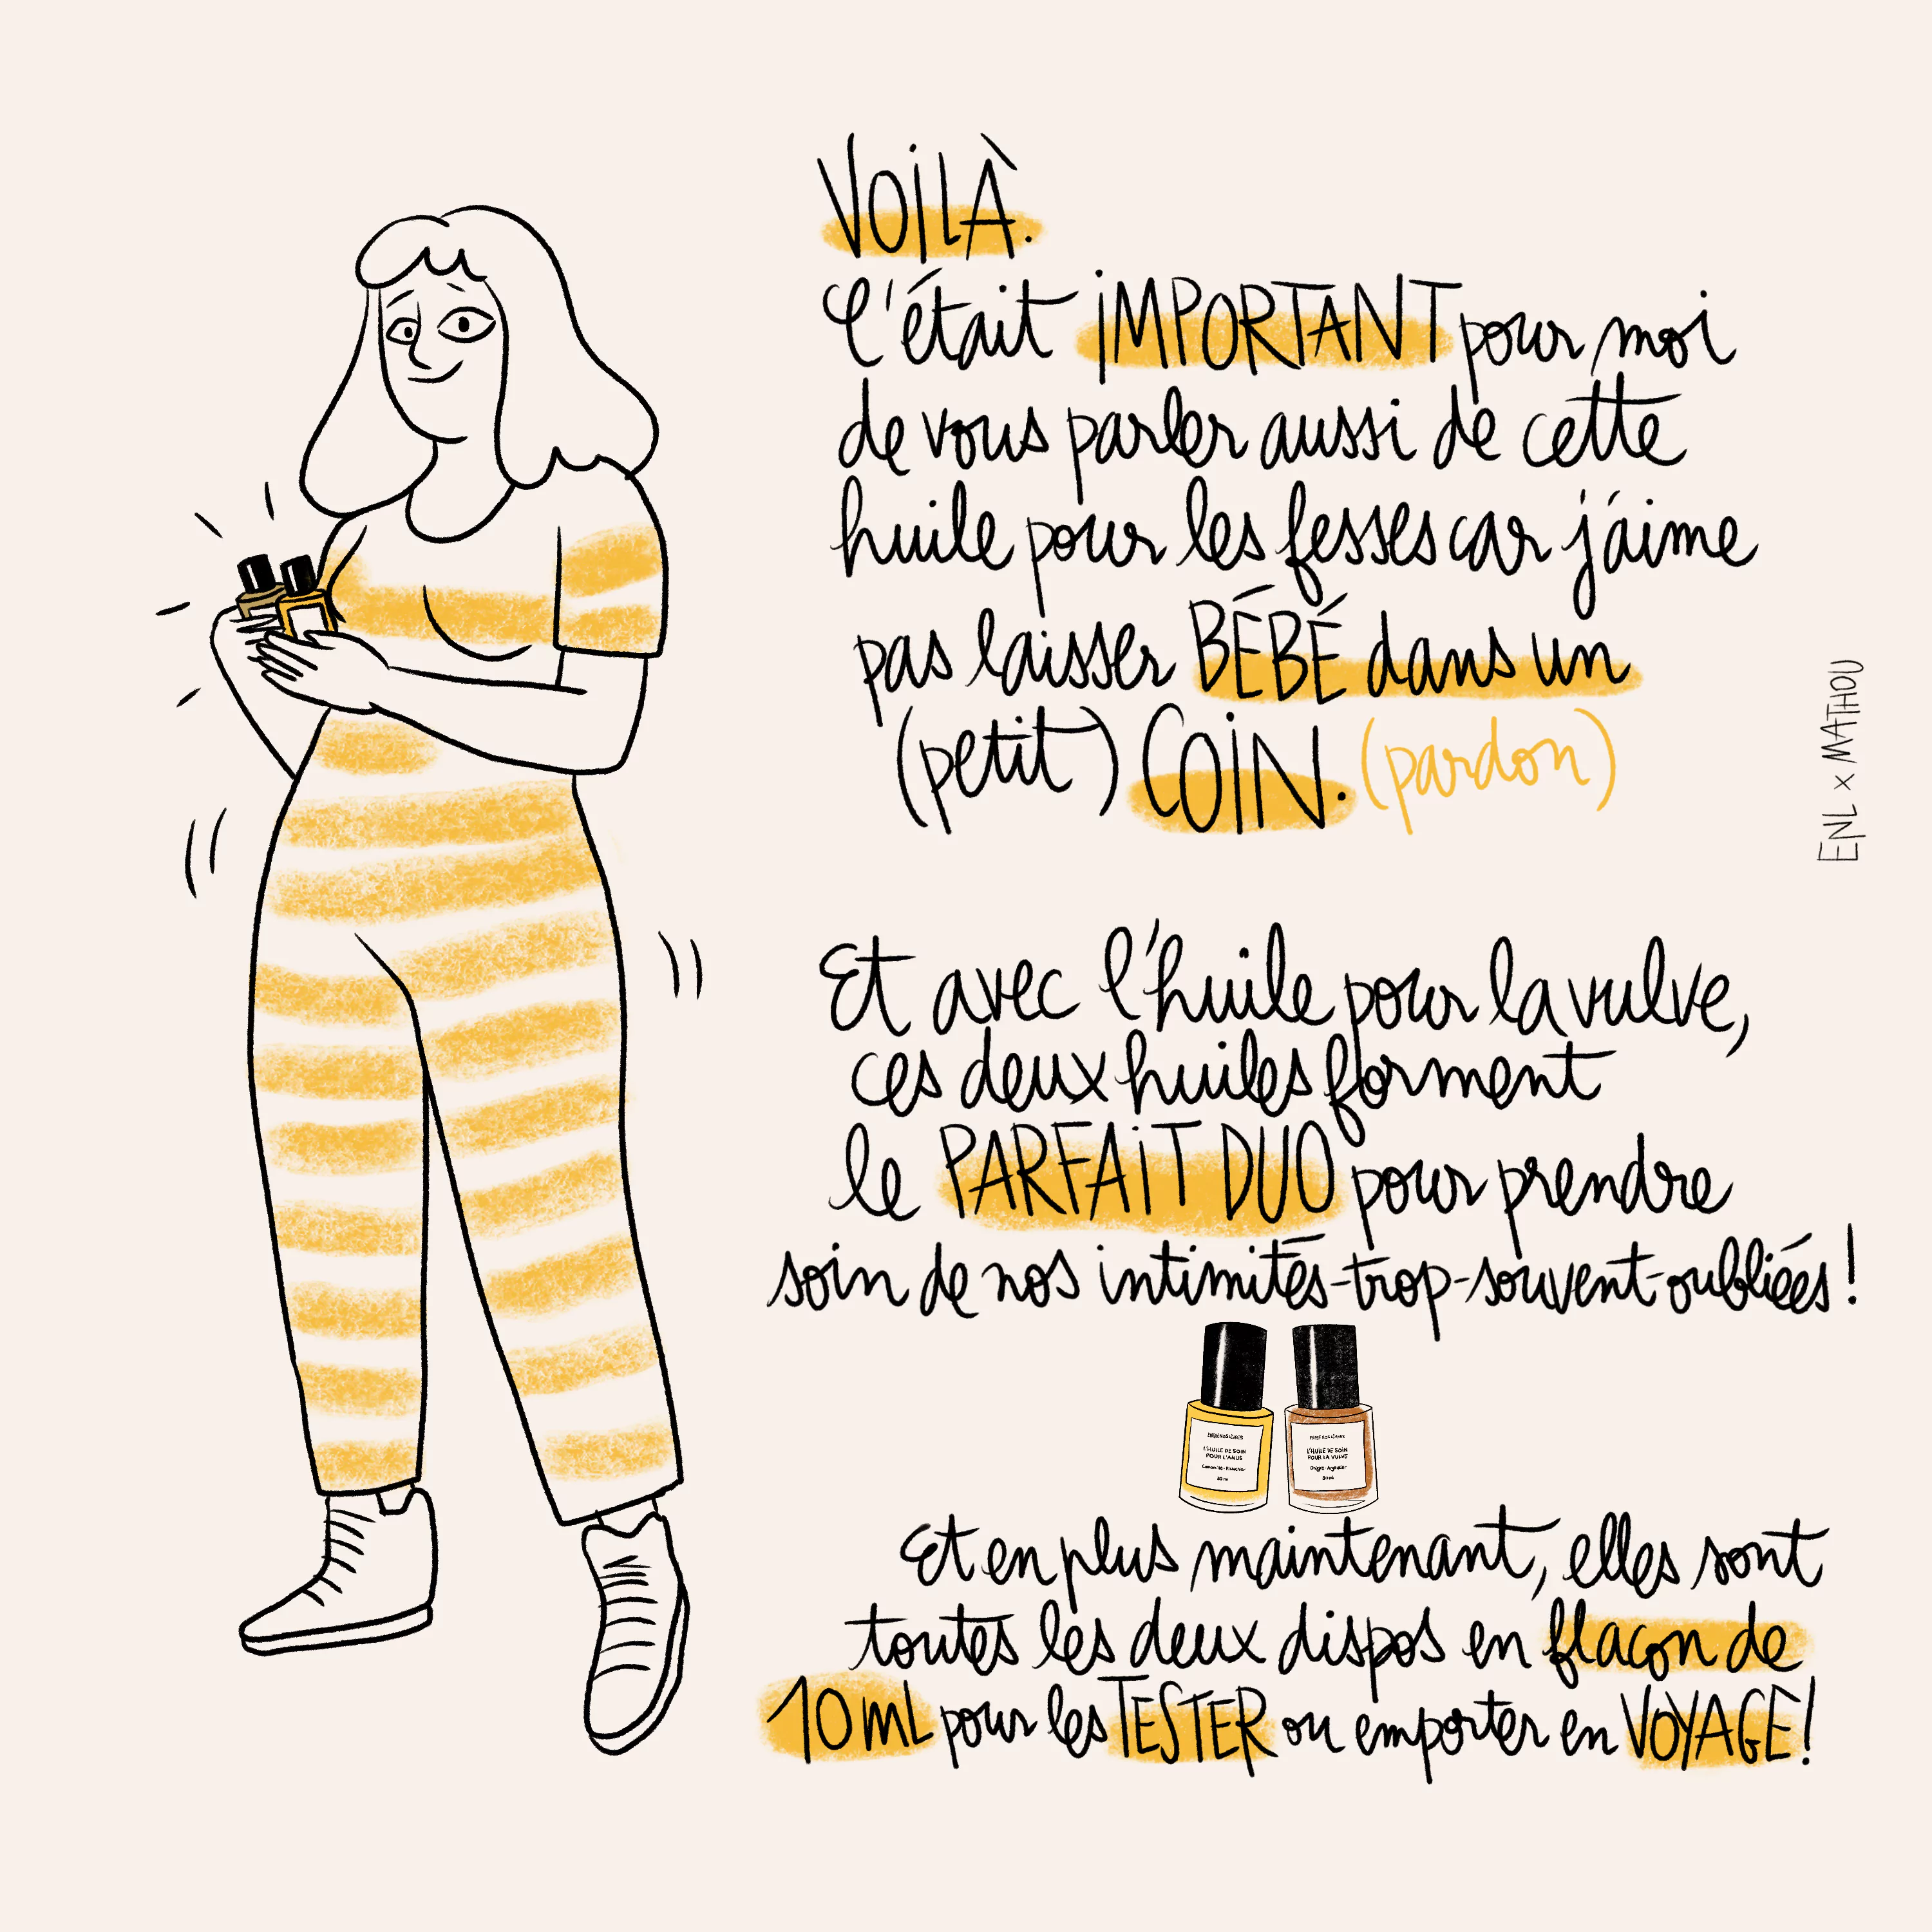 VOILÀ.
C'était IMPORTANT pour moi
de vous parler aussi de cette
huile pour les fesses car j'aime
pas laisser BÉBÉ dans un
(petit) COIN. (pardon)
ENL x MATHOU
Et avec l'huile pour la vulve,
ces deux huiles forment
le PARFAIT DUO pour prendre
soin de nos intimités-trop-souvent-oubliées!
ENTRE NOS LÈVRES
L'HUILE DE SOIN
POUR L'ANUS
30 ml
ENTRE NOS LÈVRES
L'HUILE DE SOIN
POUR LA VULVE
30 ml
Et en plus maintenant, elles sont
toutes les deux dispos en flacon de
10 mL pour les TESTER ou emporter en VOYAGE!